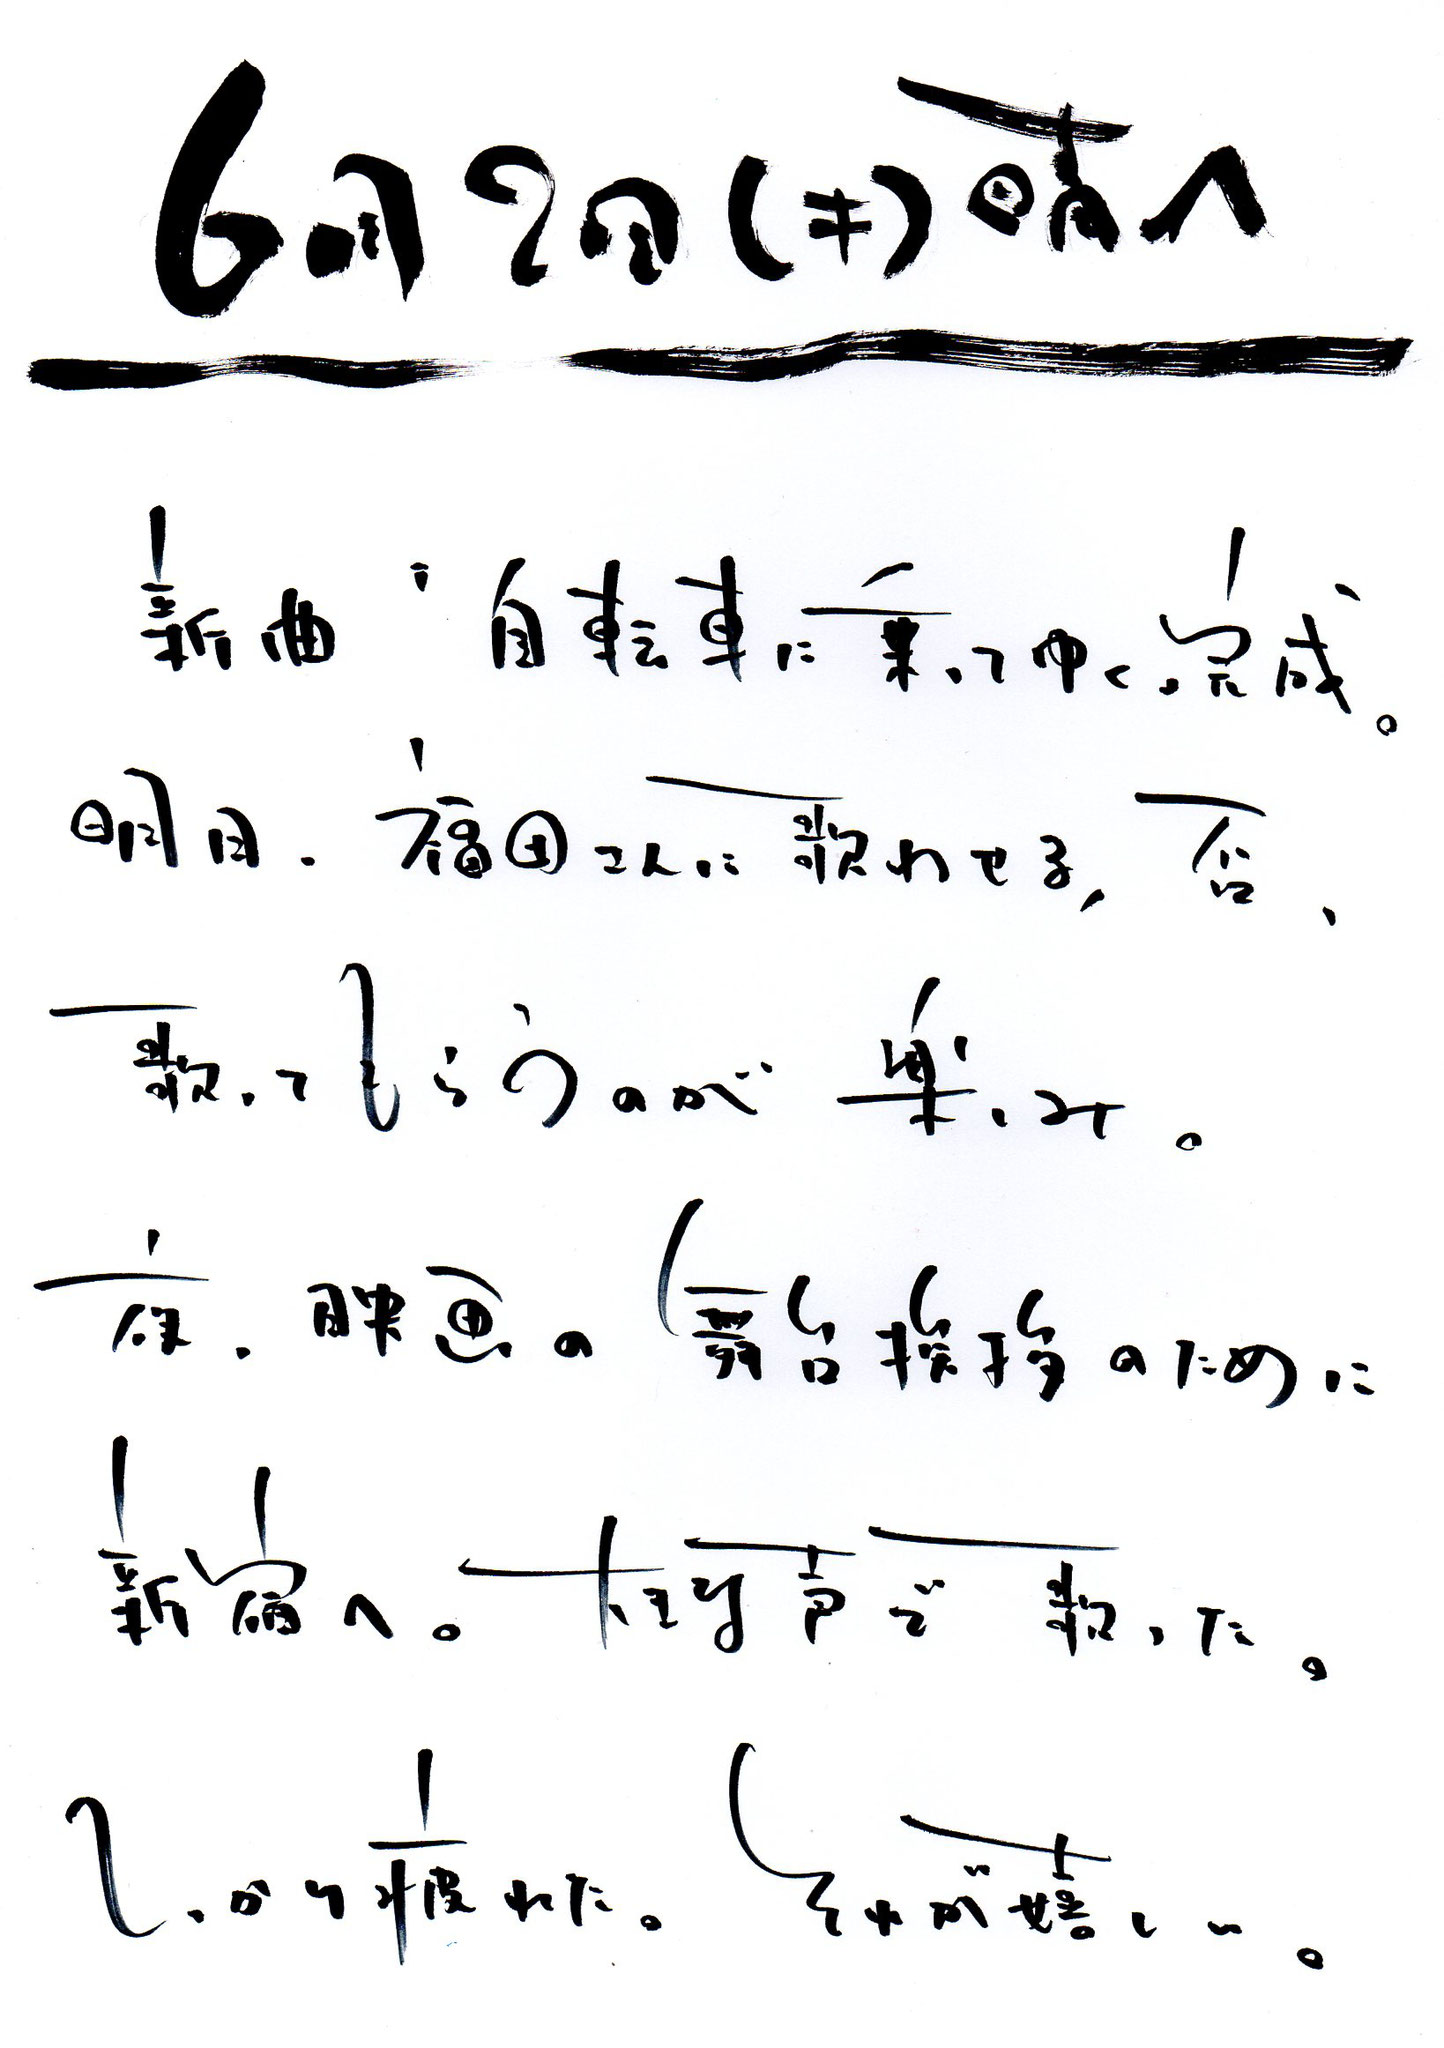 6月2日(木)晴へ
新曲〝自転車に乗ってゆく〟完成。
明日、福田さんに歌わせる、否、
歌ってもらうのが楽しみ。
夜、映画の舞台挨拶のために
新宿へ。大きな声で歌った。
しっかり疲れた。それが嬉しい。